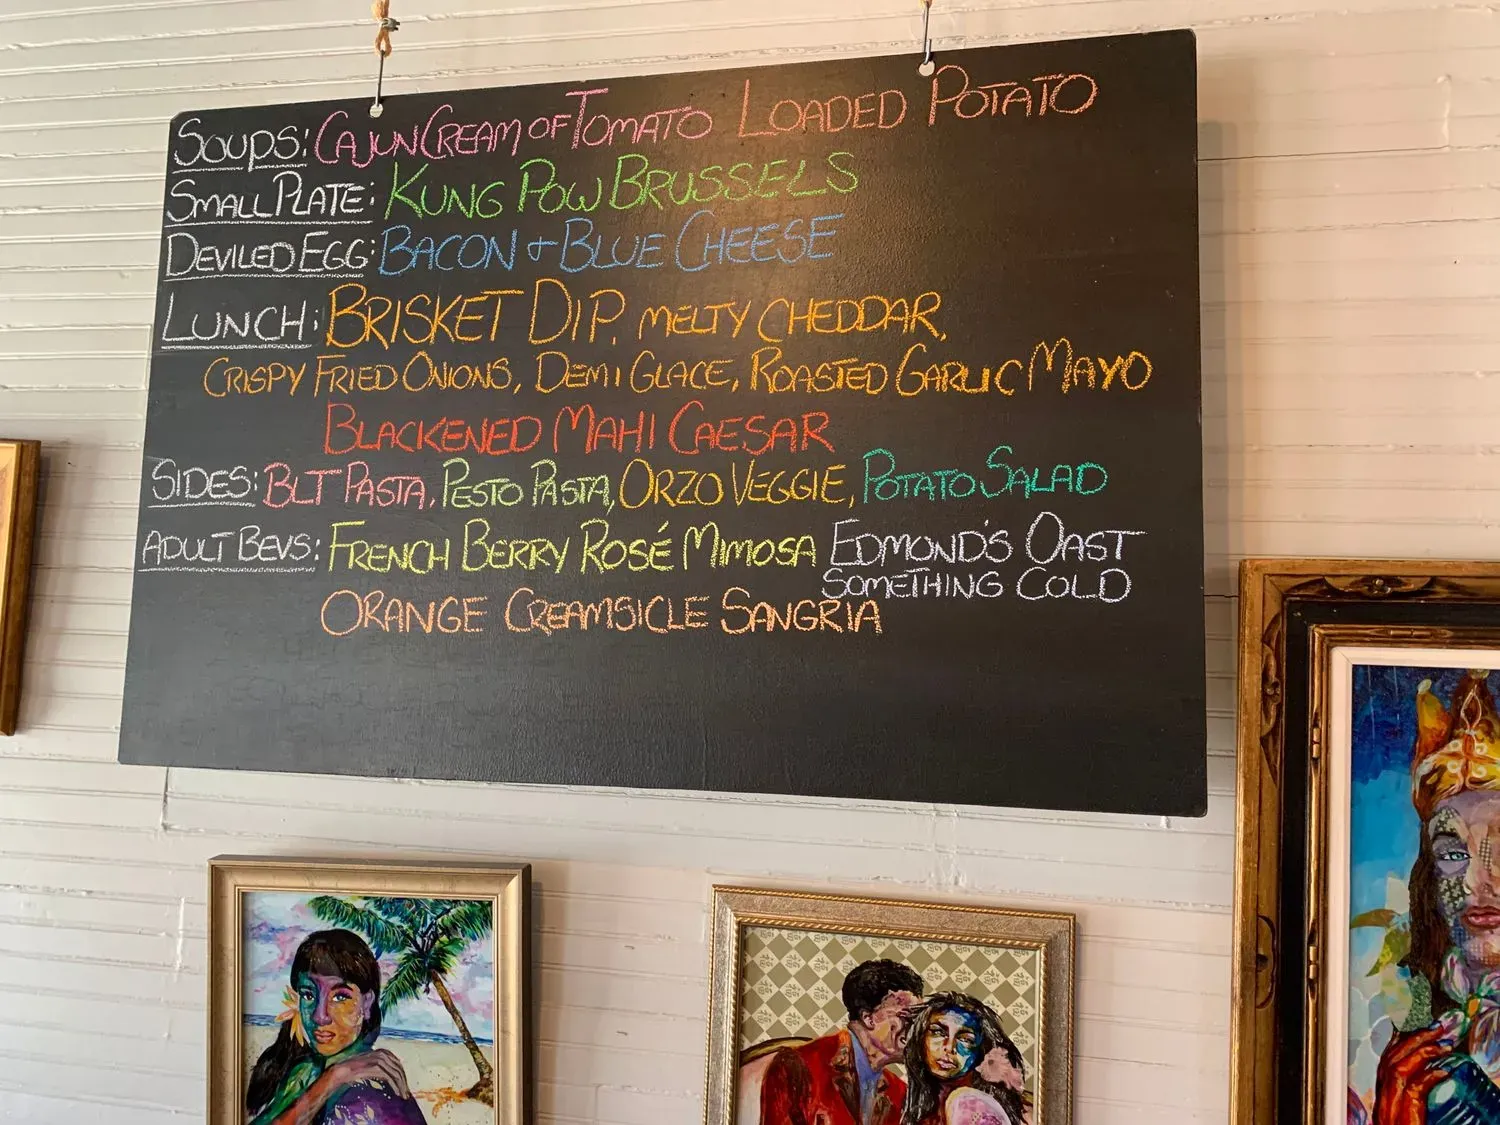 SOUPS: CAJUN CREAM OF TOMATO LOADED POTATO
SMALL PLATE: KUNG POW BRUSSELS
DEVILED EGG: BACON + BLUE CHEESE
LUNCH: BRISKET DIP, MELTY CHEDDAR,
CRISPY FRIED ONIONS, DEMI GLACE, ROASTED GARLIC MAYO
BLACKENED MAHI CAESAR
SIDES: BLT PASTA, PESTO PASTA, ORZO VEGGIE, POTATO SALAD
ADULT BEVS: FRENCH BERRY ROSÉ MIMOSA EDMOND'S OAST
SOMETHING COLD
ORANGE CREAMSICLE SANGRIA